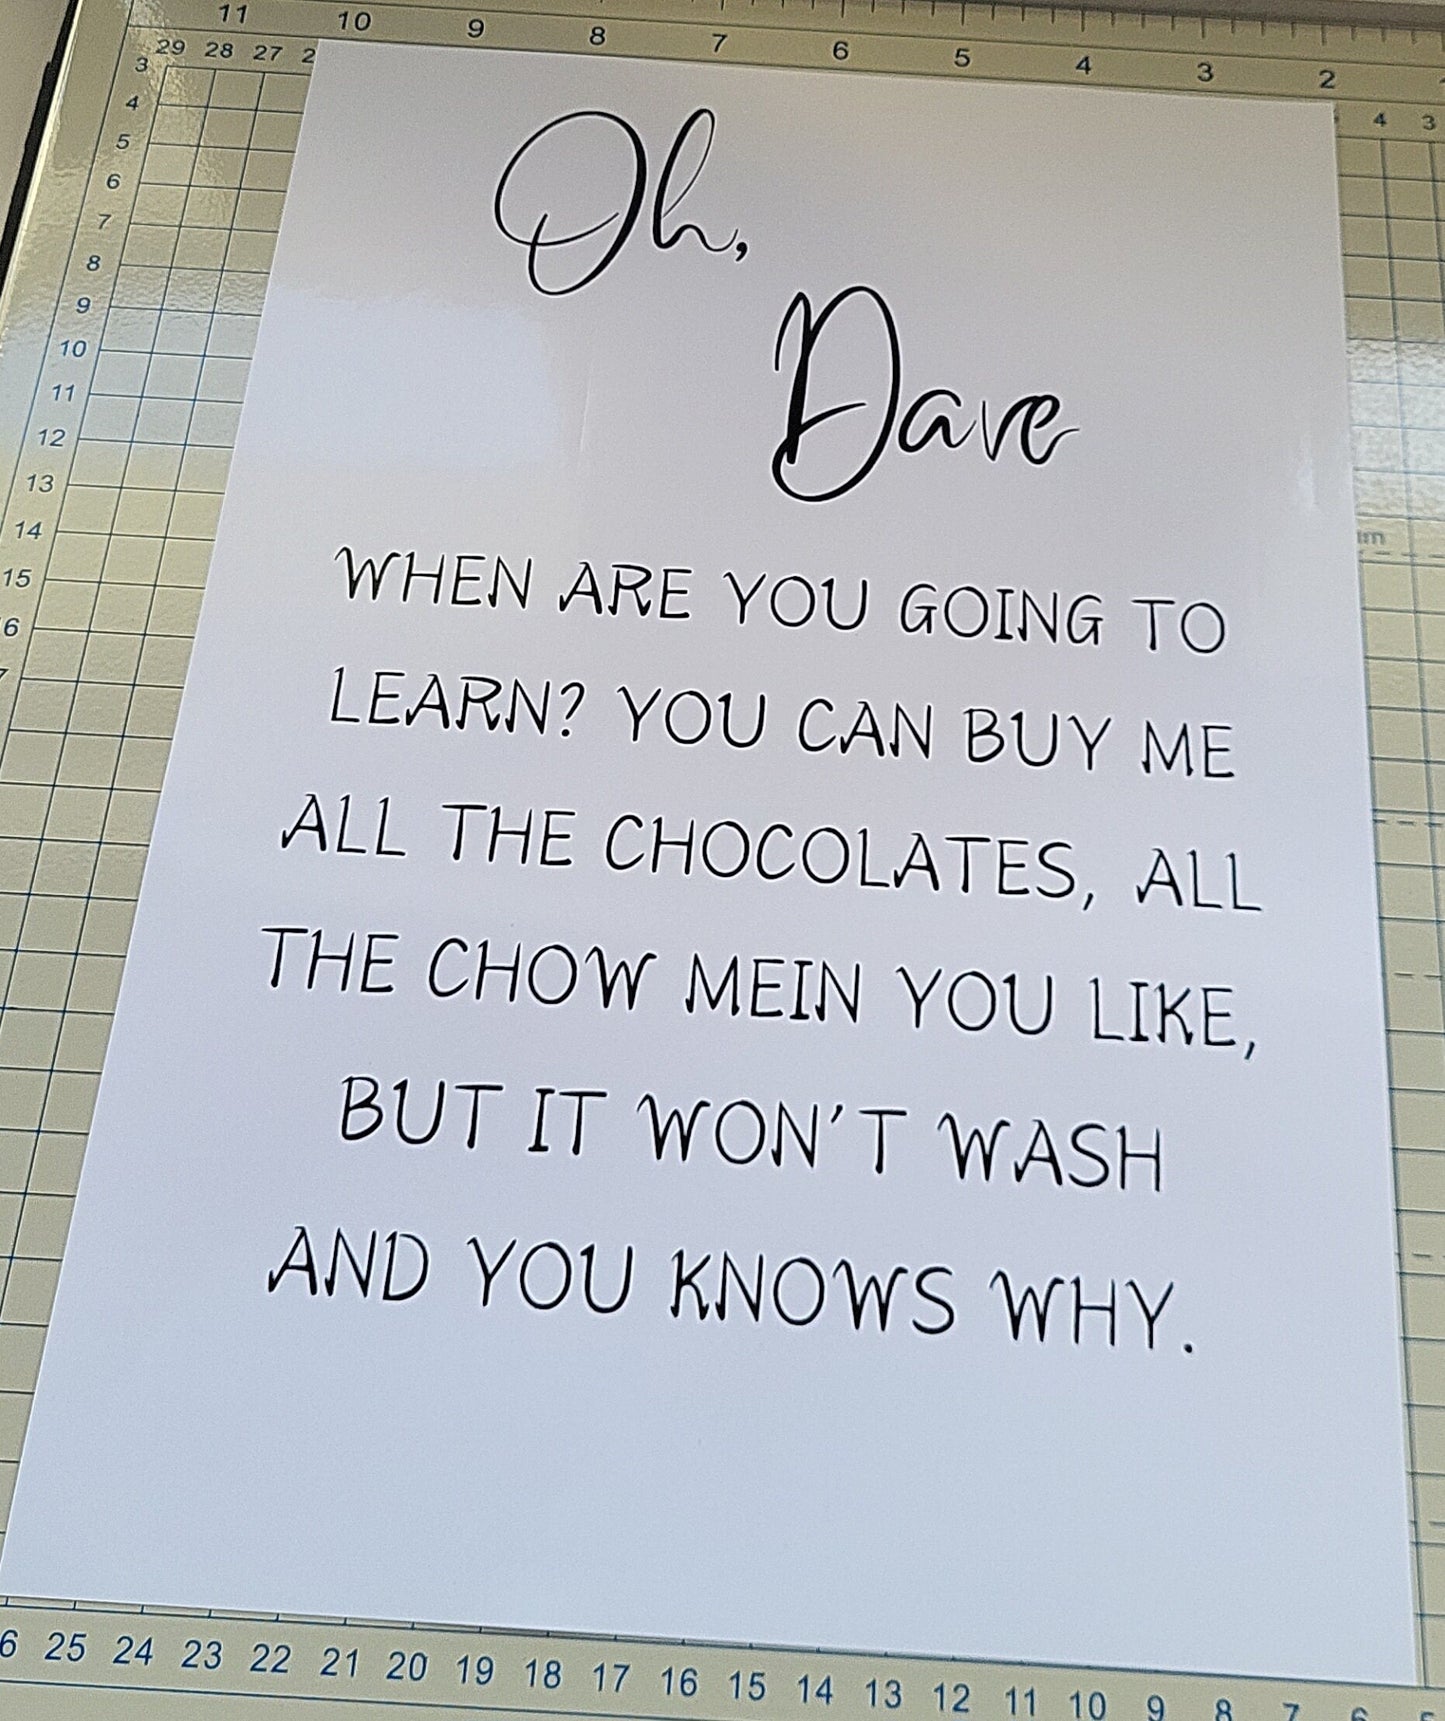 11 10 9 8 7 6 5 4 3 2
29 28 27 2
4 3
3
4
5
6
7
8
9
10
11
12
13
14
15
6
Oh,
Dave
WHEN ARE YOU GOING TO
LEARN? YOU CAN BUY ME
ALL THE CHOCOLATES, ALL
THE CHOW MEIN YOU LIKE,
BUT IT WON'T WASH
AND YOU KNOWS WHY.
6 25 24 23 22 21 20 19 18 17 16 15 14 13 12 11 10 9 8 7 6